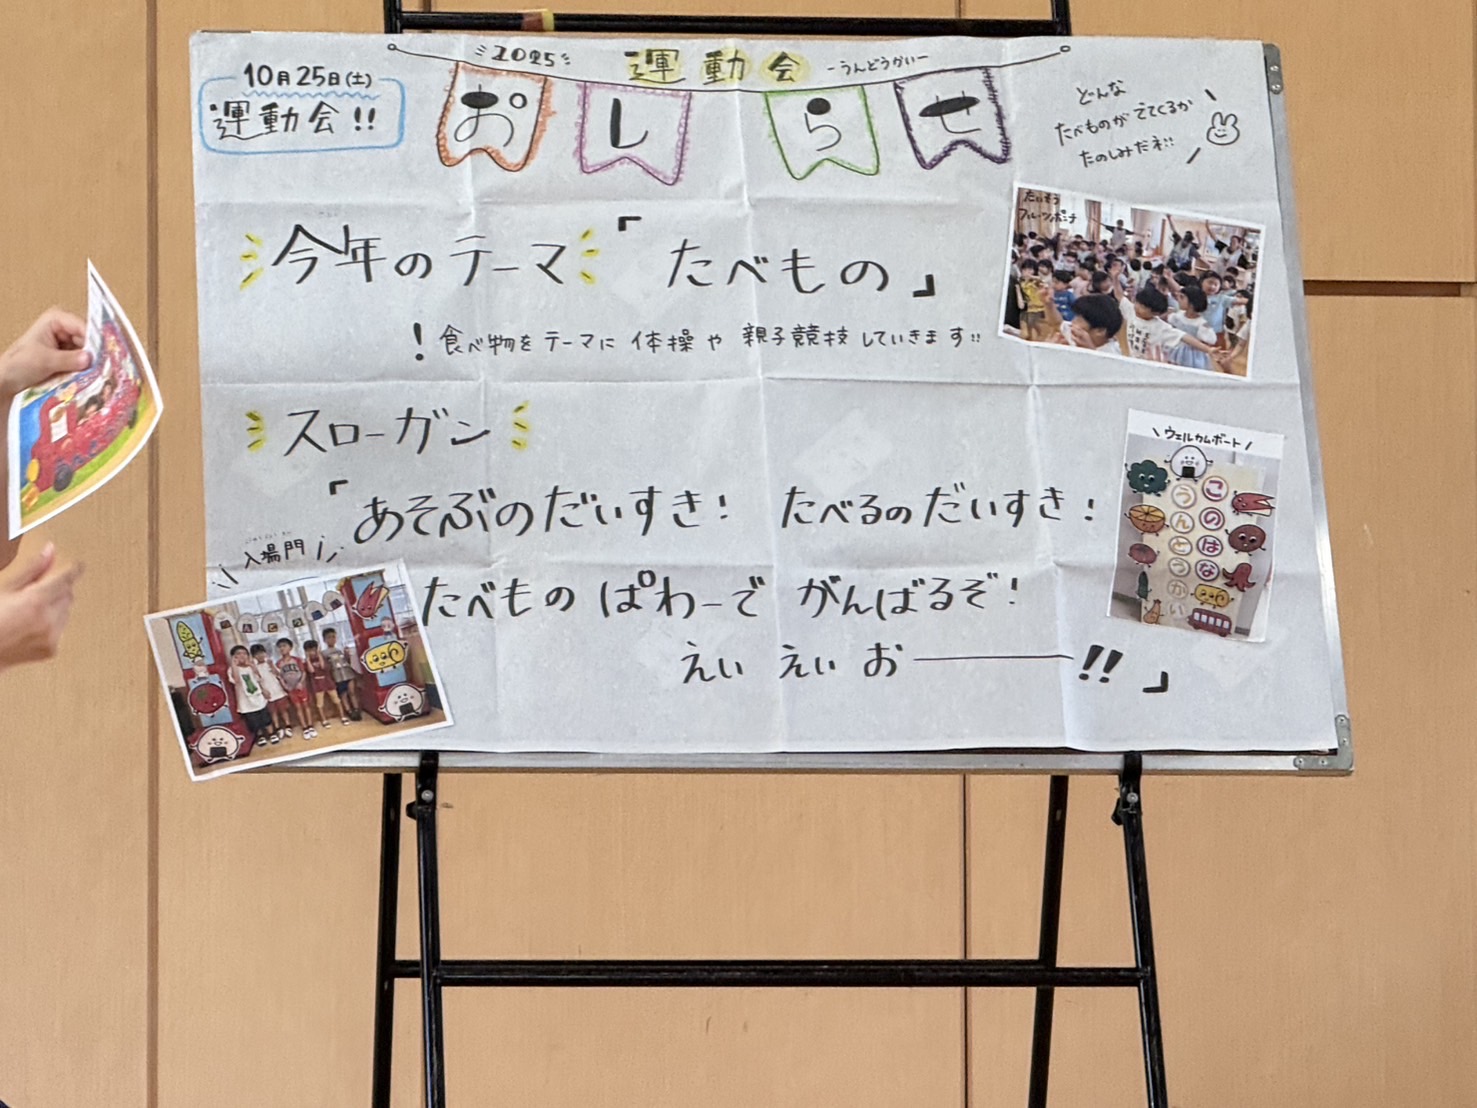 2025 運動会 -うんどうかい-
おしらせ
10月25日(土)
運動会!!
どんな
たべものが でてくるか
たのしみだネ!!
今年のテーマ「たべもの」
! 食べ物をテーマに 体操や 親子競技していきます!!
たいそう
フルーツポンチ
スローガン
「あそぶのだいすき! たべるのだいすき!
たべもの ぱわーで がんばるぞ!
えい えい おー!!」
\ウェルカムボート/
このはな
うんどうかい
入場門